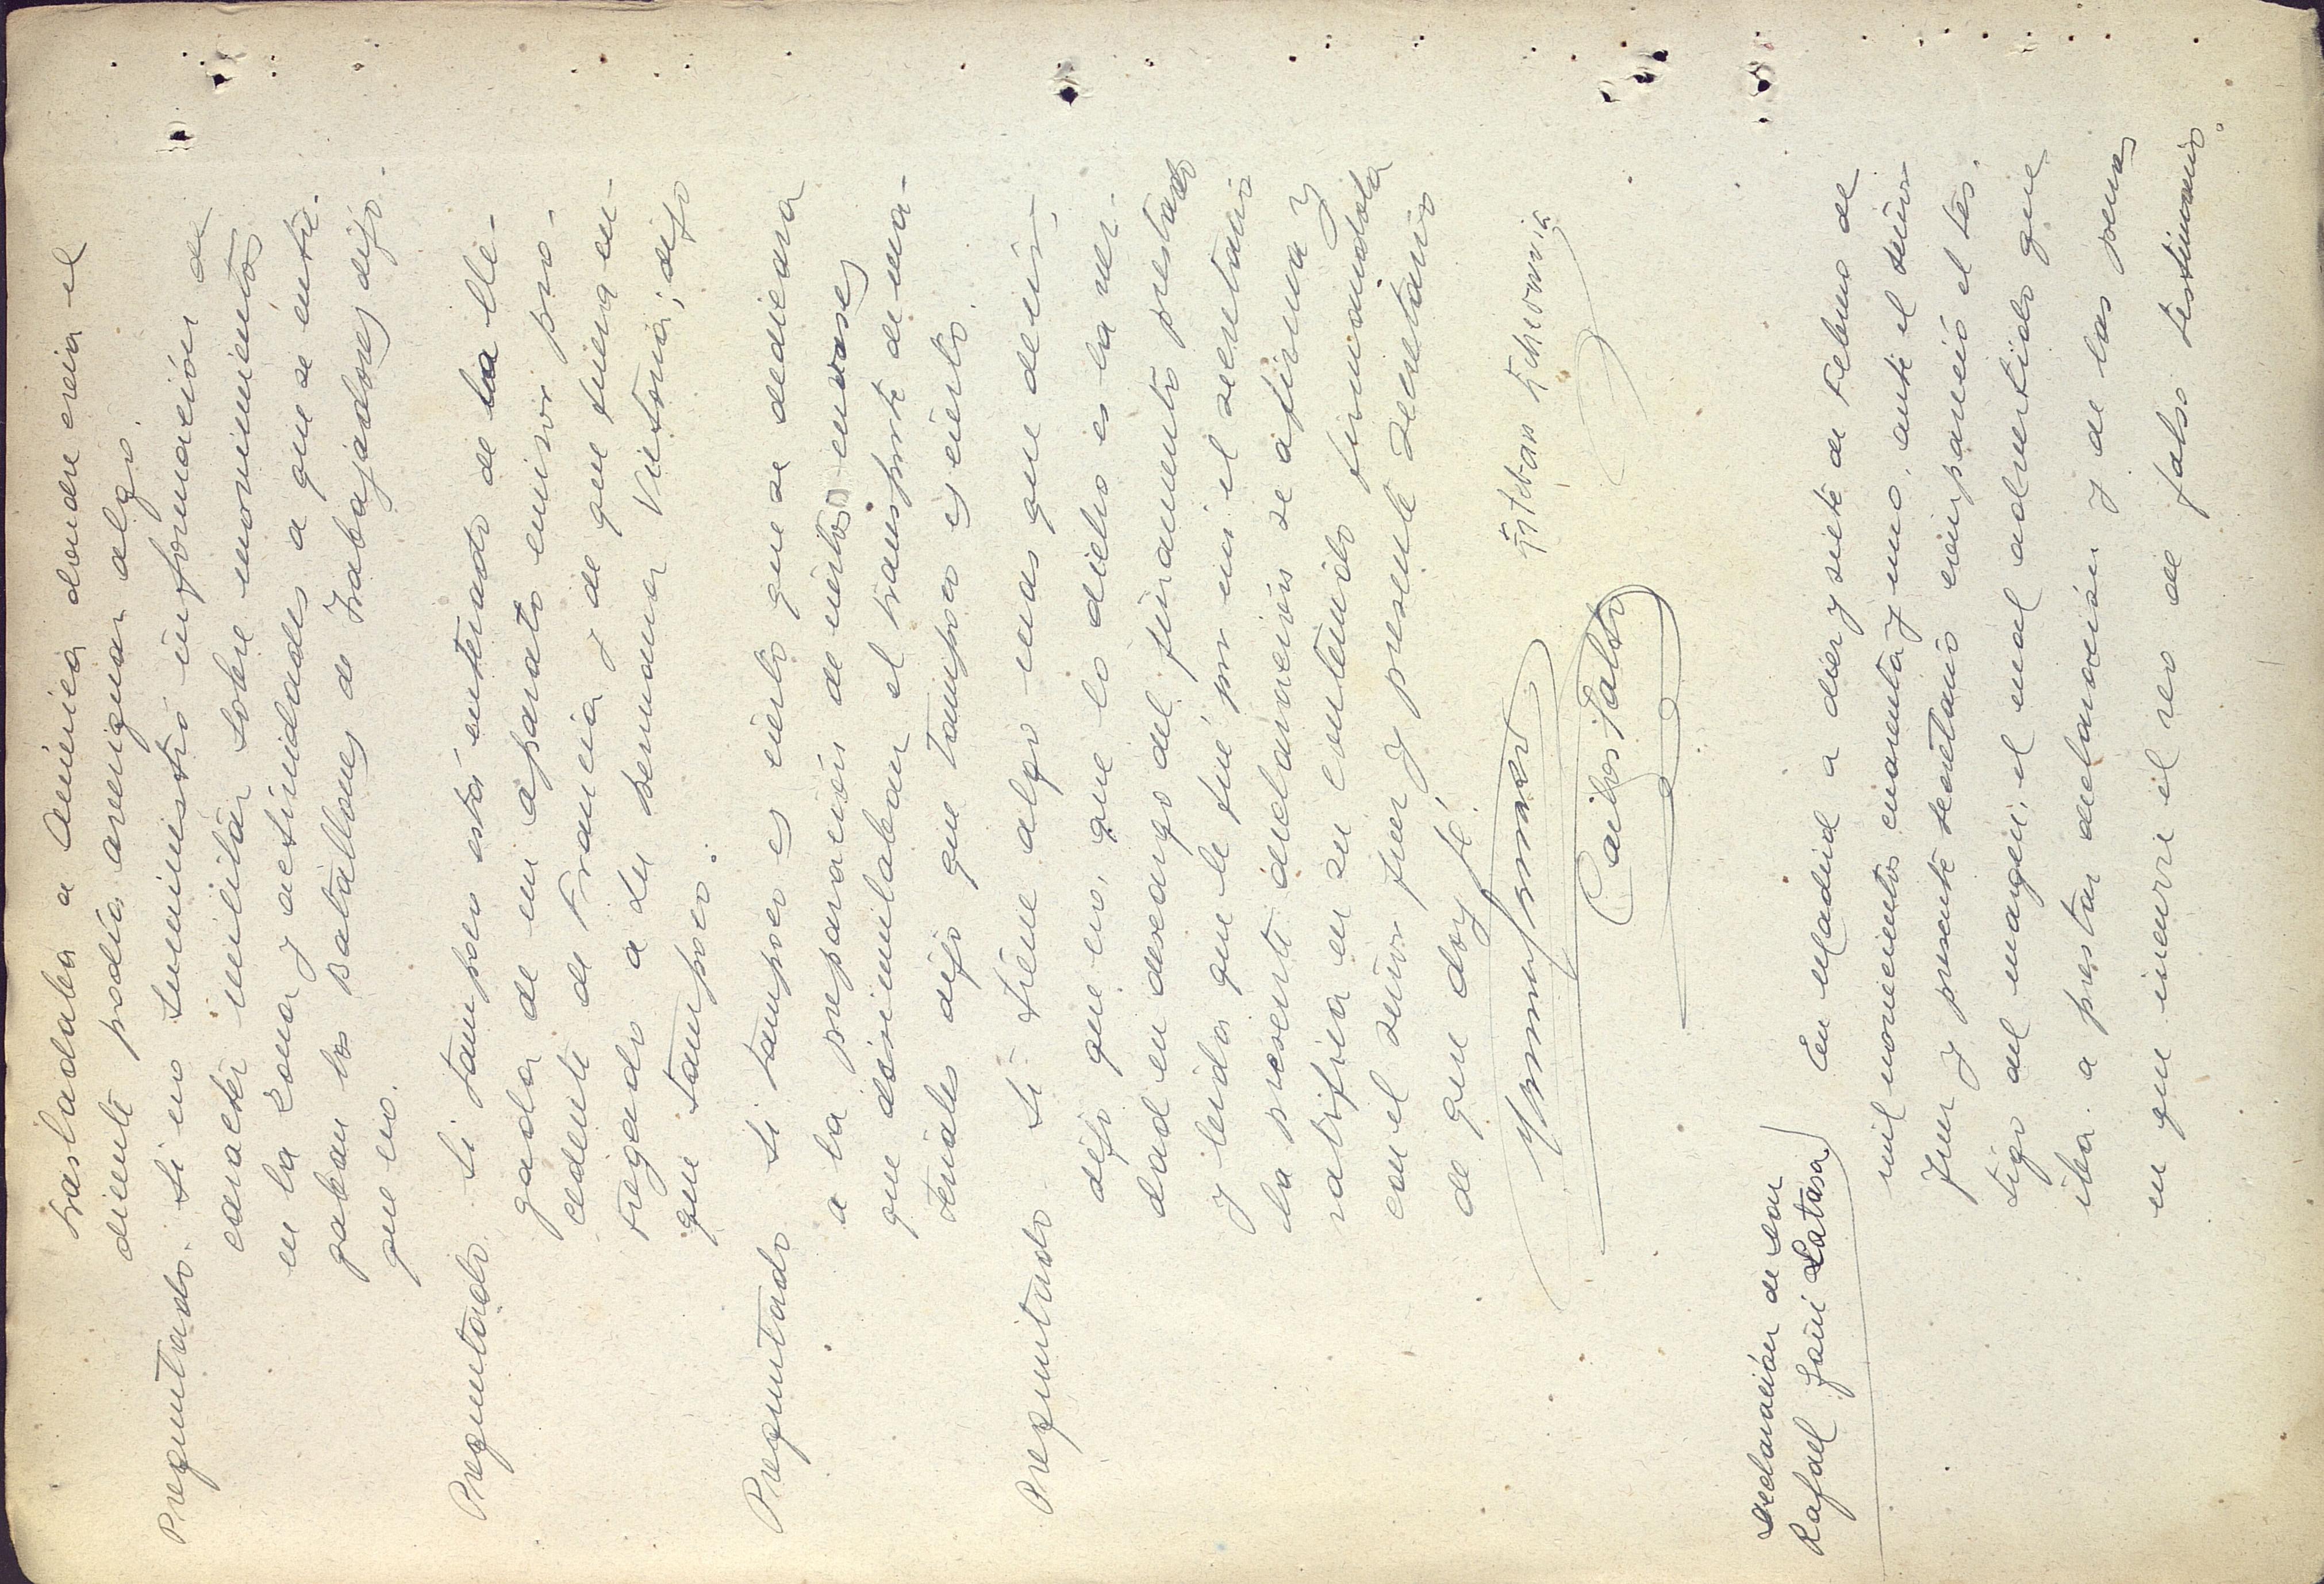 trasladaba a América donde creia el
diente podia averiguar algo.
Preguntado. Si no suministró información de
carácter militar sobre movimientos
en la zona y actividades a que se entre-
gaban los batallones de trabajadores dijo.
que no.
Preguntado. Si tampoco está enterado de la lle-
gada de un aparato emisor pro-
cedente de Francia y de que fuera en-
tregado a du Vitoria; dijo
que tampoco.
Preguntado si tampoco es cierto que se dedicara
a la preparación de ciertos envases
que disimulaban el transporte de ma-
teriales dijo que tampoco es cierto.
Preguntado si tiene algo mas que decir,
dijo que no, que lo dicho es la ver-
dad en descargo del juramento prestado
y leida que le fué por mi el secretario
la presente declaración se afirma y
ratifica en su contenido firmandola
con el señor juez y presente secretario
de que doy fé.
Esteban Echeverria
Carlos
declaración de Don
Rafael Goñi Latasa
En Madrid a diez y siete de Febrero de
mil novecientos cuarenta y uno, ante el señor
Juez y presente secretario compareció el tes-
tigo del margen; el cual advertido que
iba a prestar declaración y de las penas
en que incurre el reo de falso testimonio.